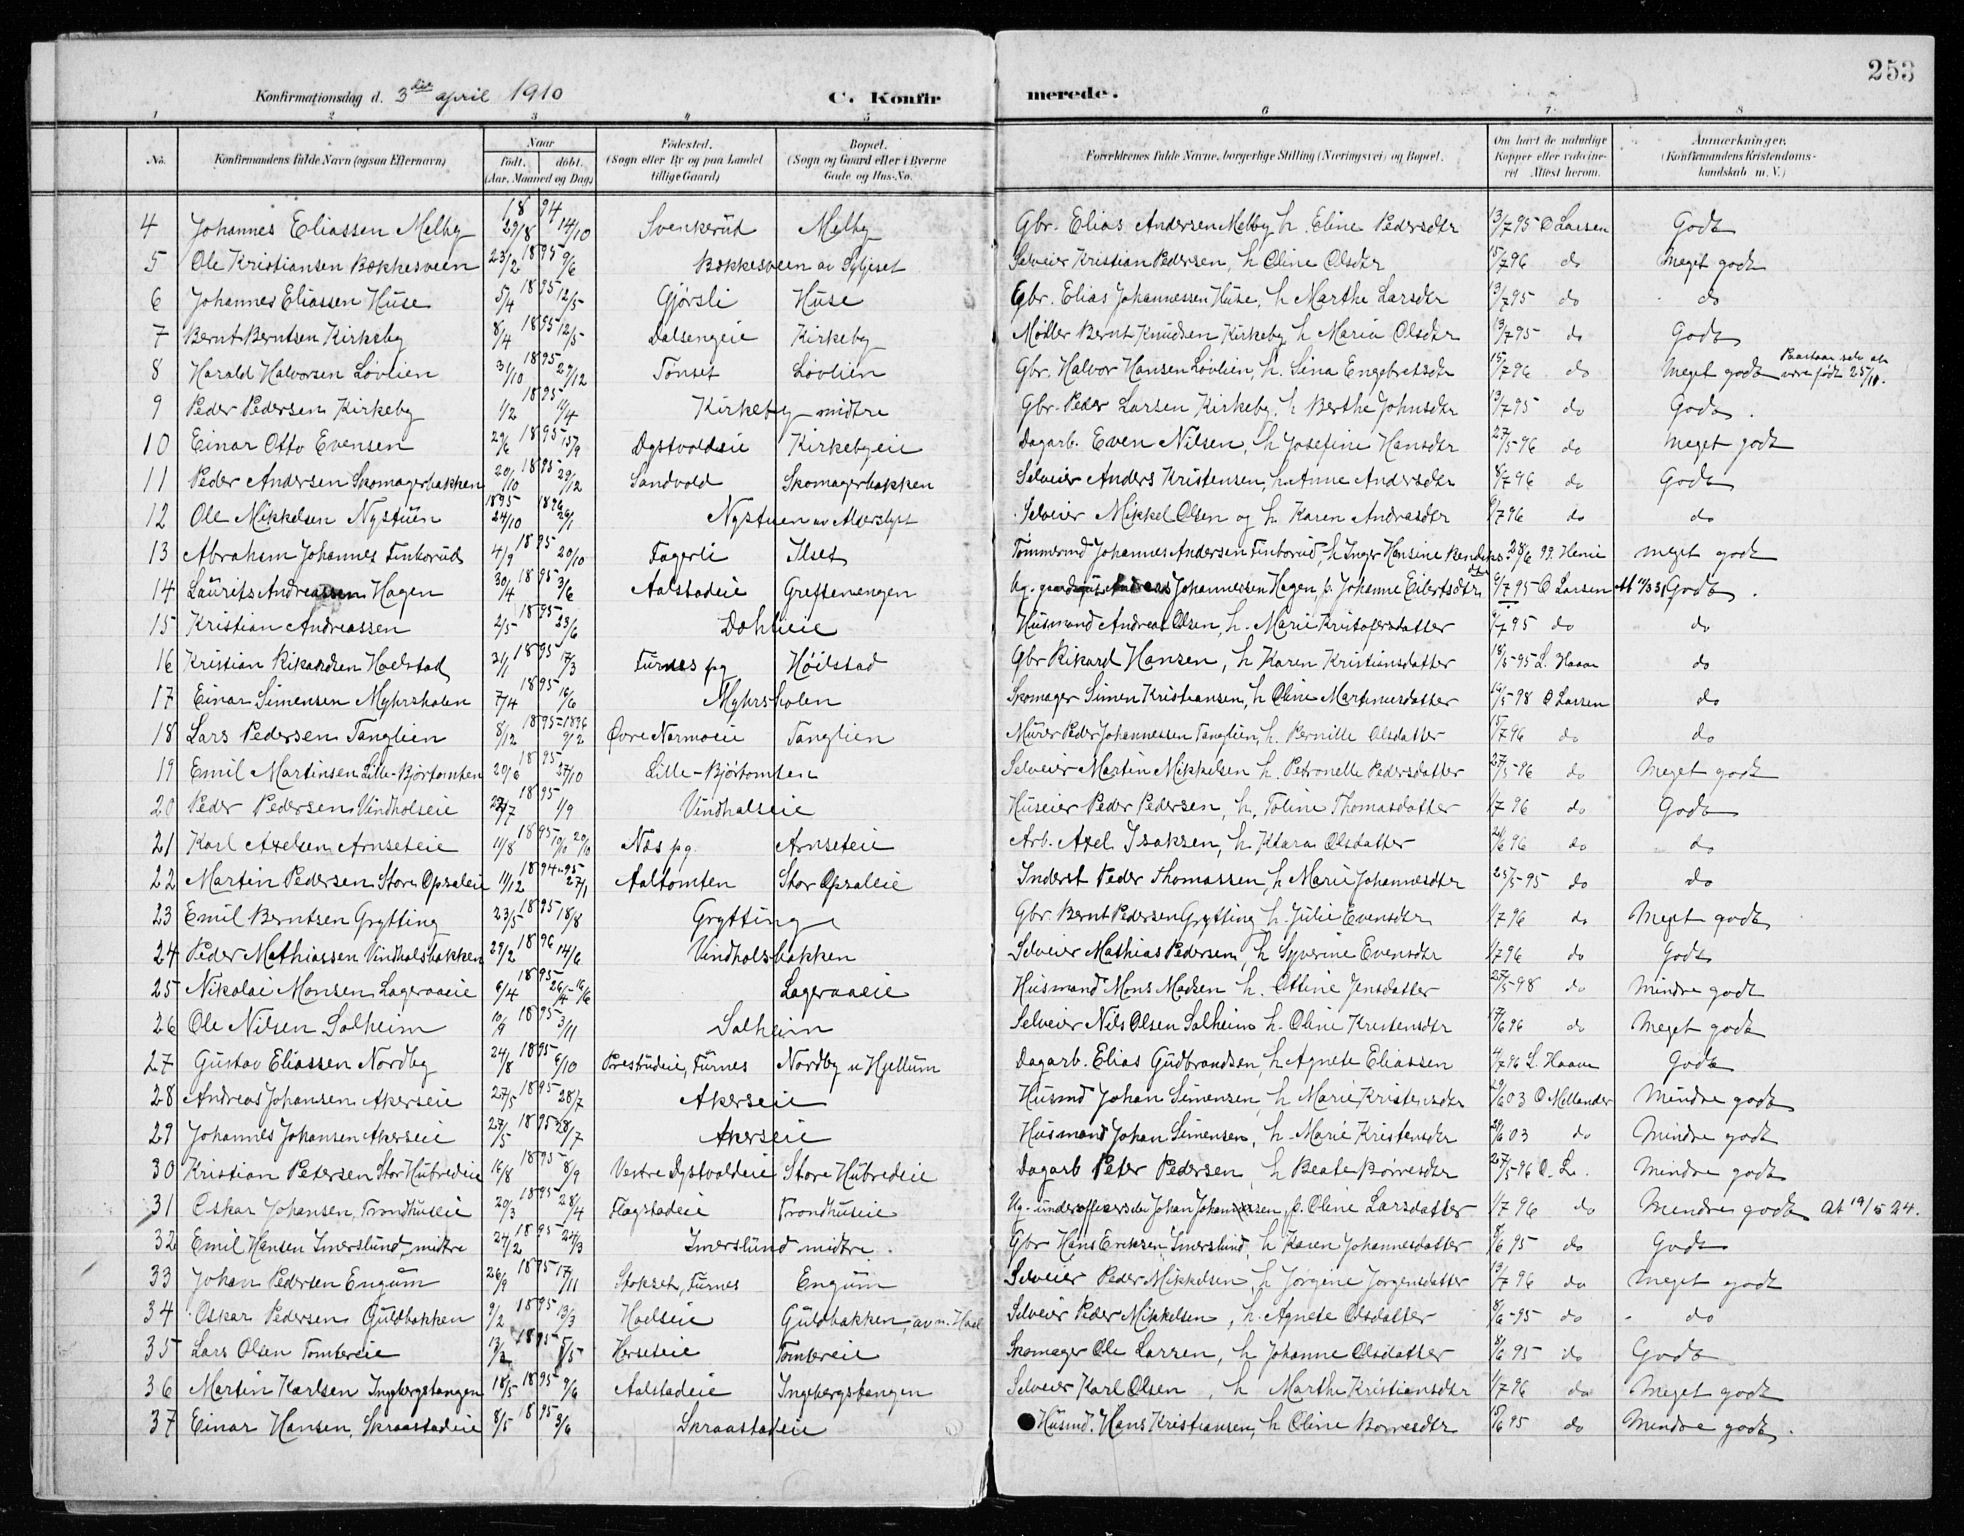 253
Konfirmationsdag d. 3die april 1910 C. Konfirmerede.
1 2 3 4 5 6 7 8
No. Konfirmandens fulde Navn (ogsaa Efternavn) Naar født. døbt. (Aar, Maaned og Dag) Fødested. (Sogn eller By og paa Landet tillige Gaard) Bopæl. (Sogn og Gaard eller i Byerne Gade og Hus-No. Forældrenes fulde Navne, borgerlige Stilling (Næringsvei) og Bopæl. Om havt de naturlige Kopper eller vakcineret Attest herom. Anmerkninger. (Konfirmandens Kristendomskundskab m. V.)
4 Johannes Eliassen Melby 1894 29/8 14/10 Svenkerud Melby Gbr. Elias Andersen Melby, h. Eline Pedersdtr 13/7 95 O Larsen Godt
5 Ole Kristiansen Bækkesveen 23/2 1895 9/6 Bækkesveen av Syljeset Selveier Kristian Pedersen, h Oline Olsdtr 15/7 96 do Meget godt
6 Johannes Eliassen Huse 5/4 1895 12/5 Gjørsli Huse Gbr. Elias Johannessen Huse, h Marthe Larsdtr 13/7 95 do do
7 Bernt Berntsen Kirkeby 8/4 1895 12/5 Dalsengeie Kirkeby Møller Bernt Knudsen Kirkeby h Maria Olsdtr 13/7 95 do Godt
8 Harald Halvorsen Løvlien 31/10 1895 29/12 Tønset Løvlien Gbr. Halvor Hansen Løvlien, h. Lina Engebretsdtr 15/7 96 do Meget godt Paastaar selv at være født 25/10.
9 Peder Pedersen Kirkeby 1/2 1895 11/4 Kirkeby midtre Gbr. Peder Larsen Kirkeby, h Berthe Johnsdtr 13/7 95 do Godt.
10 Einar Otto Evensen 29/6 1895 15/9 Dystvoldeie Kirkebyeie Dagarb. Even Nilsen, h Josefine Hansdtr 27/5 96 do Meget godt
11 Peder Andersen Skomagerbakken 20/10 1895 29/12 Sandvold Skomagerbakken Selveier Anders Kristensen, h Anne Andersdtr 8/7 96 do Godt
12 Ole Mikkelsen Nystuen 1895 24/10 1896 26/1 Nystuen av Alverslyst Selveier Mikkel Olsen og h Karen Andrasdtr 6/7 96 do do
13 Abraham Johannes Finborud 4/9 1895 20/10 Fagerli Ilset Tømmermd Johannes Andersen Finborud, h Inger Hansine Bendiks.dtr 28/6 99. Henie meget godt
14 Laurits Andreassen Hagen 30/4 1895 3/6 Aalstadeie Greftenengen Ug. Johannessen Hagen, p. Johanne Eilertsdtr 6/7 95 O Larsen Godt.
15 Kristian Andreassen 2/5 1895 23/6 Dahleie Husmand Andreas Olsen, h. Marie Kristofersdatter 6/7 95 do do
16 Kristian Rikardsen Hoelstad 21/1 1895 17/3 Furnes pg Høilstad Gbr Rikard Hansen, h Karen Kristiansdatter 18/5 95 L. Haave do
17 Einar Simensen Myhrsholen 7/4 1895 16/6 Myhrsholen Skomager Simen Kristiansen, h Oline Martinusdatter 16/5 98 O Larsen do
18 Lars Pedersen Tanglien 8/12 1895–1896 9/2 Øvre Narmoeie Tanglien Murer Peder Johannessen Tanglien, h. Pernille Olsdatter 15/7 96 do do
19 Emil Martinsen Lille-Bjørtomten 20/6 1895 27/10 Lille-Bjørtomten Selveier Martin Mikkelsen h. Petronelle Pedersdatter 27/5 96 do Meget godt
20 Peder Pedersen Vindholseie 27/7 1895 1/9 Vindhalseie Huseier Peder Pedersen, h, Toline Thomasdatter 1/7 96 do Godt
21 Karl Axelsen Arnseteie 11/8 1895 20/10 Næs pg. Arnseteie Arb. Axel Isaksen, h Klara Olsdatter 96 do do
22 Martin Pedersen Store Opsaleie 11/12 1894–95 27/1 Aaltomten Stor Opsaleie Inderst Peder Thomassen, h Marie Johannesdtr 25/5 95 do do
23 Emil Berntsen Grytting 23/5 1895 18/8 Grytting Gbr Bernt Pedersen Grytting h Julie Evensdtr 1/7 96 do Meget godt
24 Peder Mathiassen Vindholsbakken 29/2 1896 14/6 Vindholsbakken Selveier Mathias Pedersen, h Syverine Evensdtr 1/7 96 do Godt
25 Nikolai Monsen Lageraaeie 6/4 1895 26/4–16/6 Lageraaeie Husmand Mons Madsen h. Ottine Jensdatter 25/5 98 do Mindre godt
26 Ole Nilsen Solheim 10/9 1895 3/11 Solheim Selveier Nils Olsen Solheim h. Oline Kristensdtr 17/6 96 do Meget godt
27 Gustav Eliassen Nordby 24/8 1895 6/10 Prestrudeie, Furnes Nordby u Hjellum Dagarb. Elias Gudbrandsen, h Agnete Eliassen 4/7 96 L. Haave Godt
28 Andreas Johansen Akerseie 27/5 1895 28/7 Akerseie Husmd Johan Simensen, h Marie Kristensdtr 29/6 03 O Mellander Mindre godt
29 Johannes Johansen Akerseie 27/5 1895 28/7 Akerseie Husmand Johan Simensen, h. Marie Kristensdtr 29/6 03 do Mindre godt
30 Kristian Petersen Stor Hubredeie 16/8 1895 8/9 Vestre Dystvoldeie Store Hubredeie Dagarb Peter Pedersen, h Beate Børresdtr 27/5 96 O. L. Mindre godt
31 Oskar Johansen, Trondhuseie 20/3 1895 28/4 Flagstadeie Trondhuseie Ug. underofficerselev Johan Johansen, p. Oline Larsdatter 1/7 96 do Mindre godt At 19/5 24.
32 Emil Hansen Imerslund, midtre 24/2 1895 24/3 Imerslund midtre. Gbr Hans Eriksen Imerslund, h Karen Johannesdatter 8/6 95 do Godt
33 Johan Pedersen Engum 26/9 1895 17/11 Stokset, Furnes Engum Selveier Peder Mikkelsen, h Jørgine Jørgensdatter 13/7 96 do Meget godt
34 Oskar Pedersen Guldbakken 9/2 1895 13/3 Hoelseie Guldbakken, av n. Hoel Selveier Peder Mikkelsen, h. Agnete Olsdatter 8/6 95 do do
35 Lars Olsen Tomtereie 13/3 1895 5/5 Herseteie Tomtereie Skomager Ole Larsen, h Johanne Olsdatter 8/6 95 do Godt
36 Martin Karlsen Ingbergstangen 18/5 1895 9/6 Aalstadeie Ingebergstangen Selveier Karl Olsen, h Marthe Kristiansdtr 1/7 96 do Meget godt
37 Einar Hansen, Skraastadeie 8/5 1895 3/6 Skraastadeie Husmd. Hans Kristiansen, h Oline Børresdtr 95 do Mindre godt.